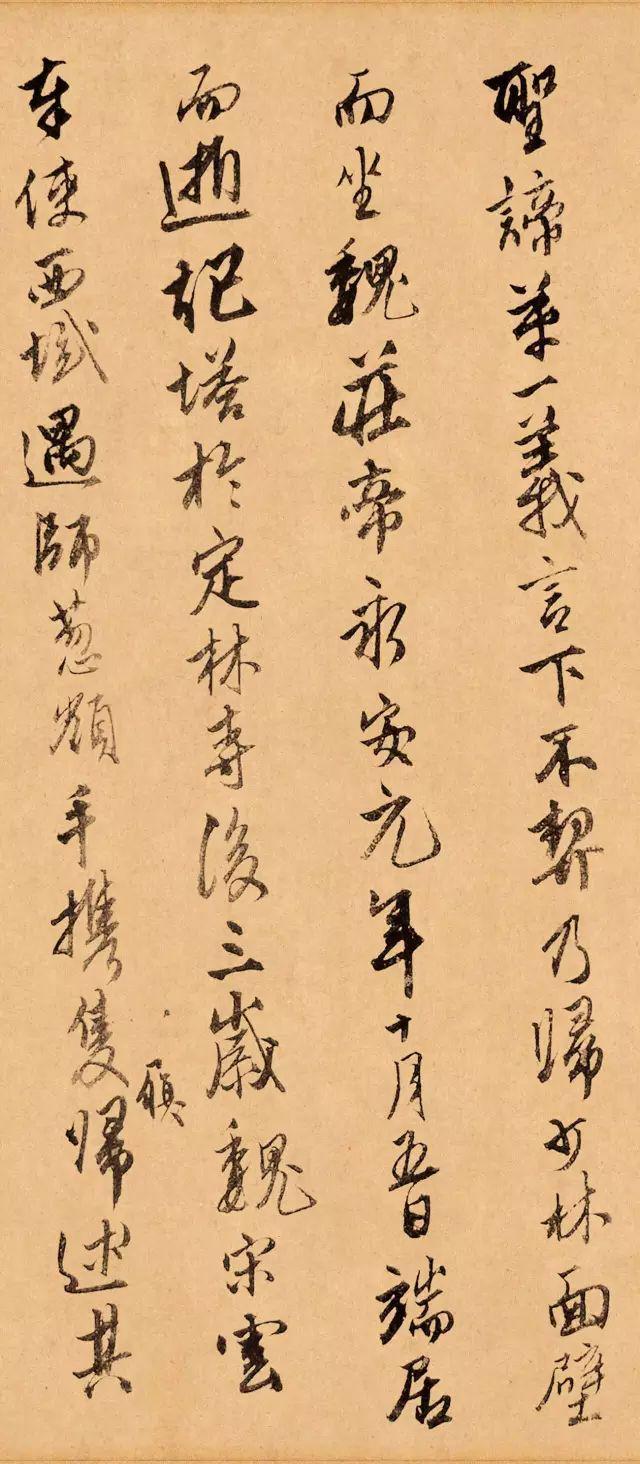 聖諦第一義言下不契乃歸少林面壁
而坐魏莊帝永安元年十月五日端居
而逝起塔於定林寺後三歲魏宋雲
奉使西域遇師葱嶺手携隻履歸述其